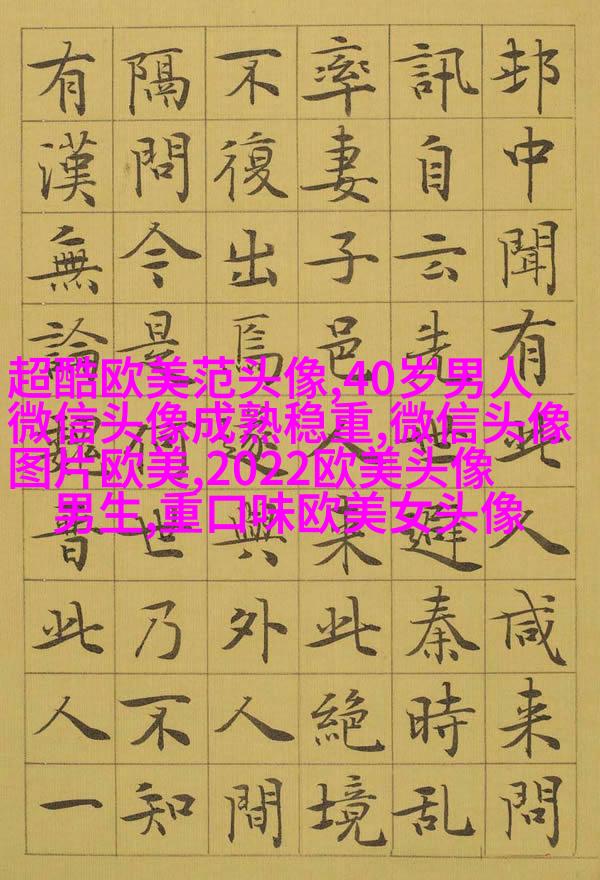 邨中聞有此人咸来問
訊自云先世避秦時乱
率妻子邑人来此絶境
不復出焉遂與外人間
隔問今是何世乃不知
有漢無論魏晋此人一
超酷欧美范头像,40岁男人
微信头像成熟稳重,微信头像
图片欧美,2022欧美头像
男生,重口味欧美女头像